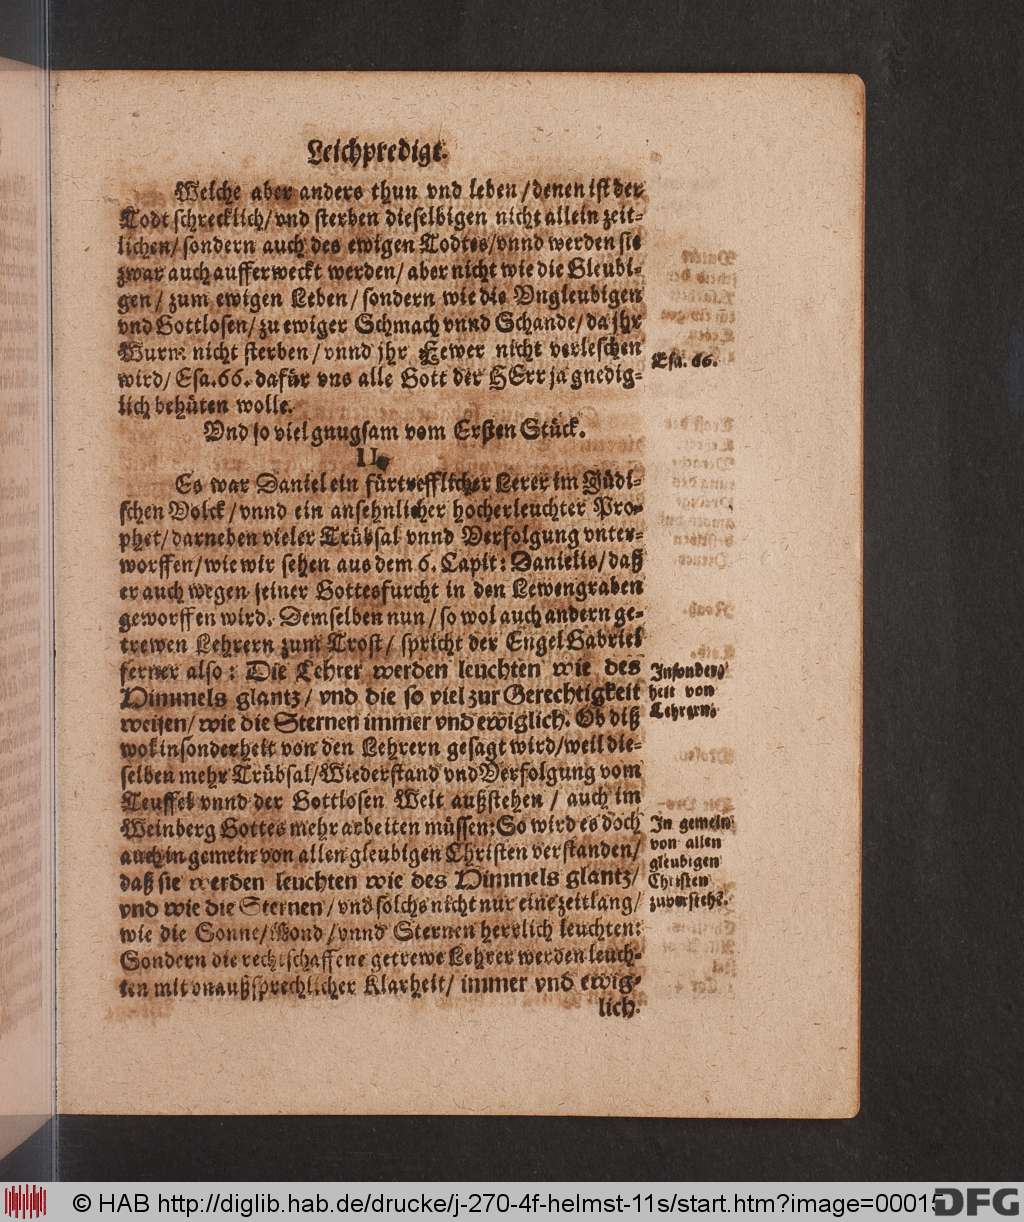 Leichpredigt.
Welche aber anders thun vnd leben / denen ist der
Todt schrecklich / vnd sterben dieselbigen nicht allein zeit-
lichen / sondern auch des ewigen Todtes / vnnd werden sie
zwar auch aufferweckt werden / aber nicht wie die Gleubi-
gen / zum ewigen Leben / sondern wie die Vngleubigen
vnd Gottlosen / zu ewiger Schmach vnnd Schande / da jhr
Wurm nicht sterben / vnnd jhr Fewer nicht verleschen
wird / Esa. 66. dafür vns alle Gott der HErr ja gnedig-
lich behüten wolle.
Esa. 66.
Vnd so viel gnugsam vom Ersten Stück.
II.
Es war Daniel ein fürtrefflicher Lerer im Jüdi-
schen Volck / vnnd ein ansehnlicher hocherleuchter Pro-
phet / darneben vieler Trübsal vnnd Verfolgung vnter-
worffen / wie wir sehen aus dem 6. Capit: Danielis / daß
er auch wegen seiner Gottesfurcht in den Lewengraben
geworffen wird. Demselben nun / so wol auch andern ge-
trewen Lehrern zum Trost / spricht der Engel Gabriel
ferner also: Die Lehrer werden leuchten wie des
Himmels glantz / vnd die so viel zur Gerechtigkeit
weisen / wie die Sternen immer vnd ewiglich. Ob diß
wol insonderheit von den Lehrern gesagt wird / weil die-
selben mehr Trübsal / Wiederstand vnd Verfolgung vom
Teuffel vnnd der Gottlosen Welt außstehen / auch im
Weinberg Gottes mehr arbeiten müssen: So wird es doch
auch in gemein von allen gleubigen Christen verstanden /
daß sie werden leuchten wie des Himmels glantz /
vnd wie die Sternen / vnd solchs nicht nur eine zeitlang /
wie die Sonne / Mond / vnnd Sternen herrlich leuchten:
Sondern die rechtschaffene getrewe Lehrer werden leuch-
ten mit vnaußsprechlicher Klarheit / immer vnd ewig-
lich.
Insonder-
heit von
Lehrern.
In gemein
von allen
gleubigen
Christen
zuverstehē.
© HAB http://diglib.hab.de/drucke/j-270-4f-helmst-11s/start.htm?image=00015
DFG